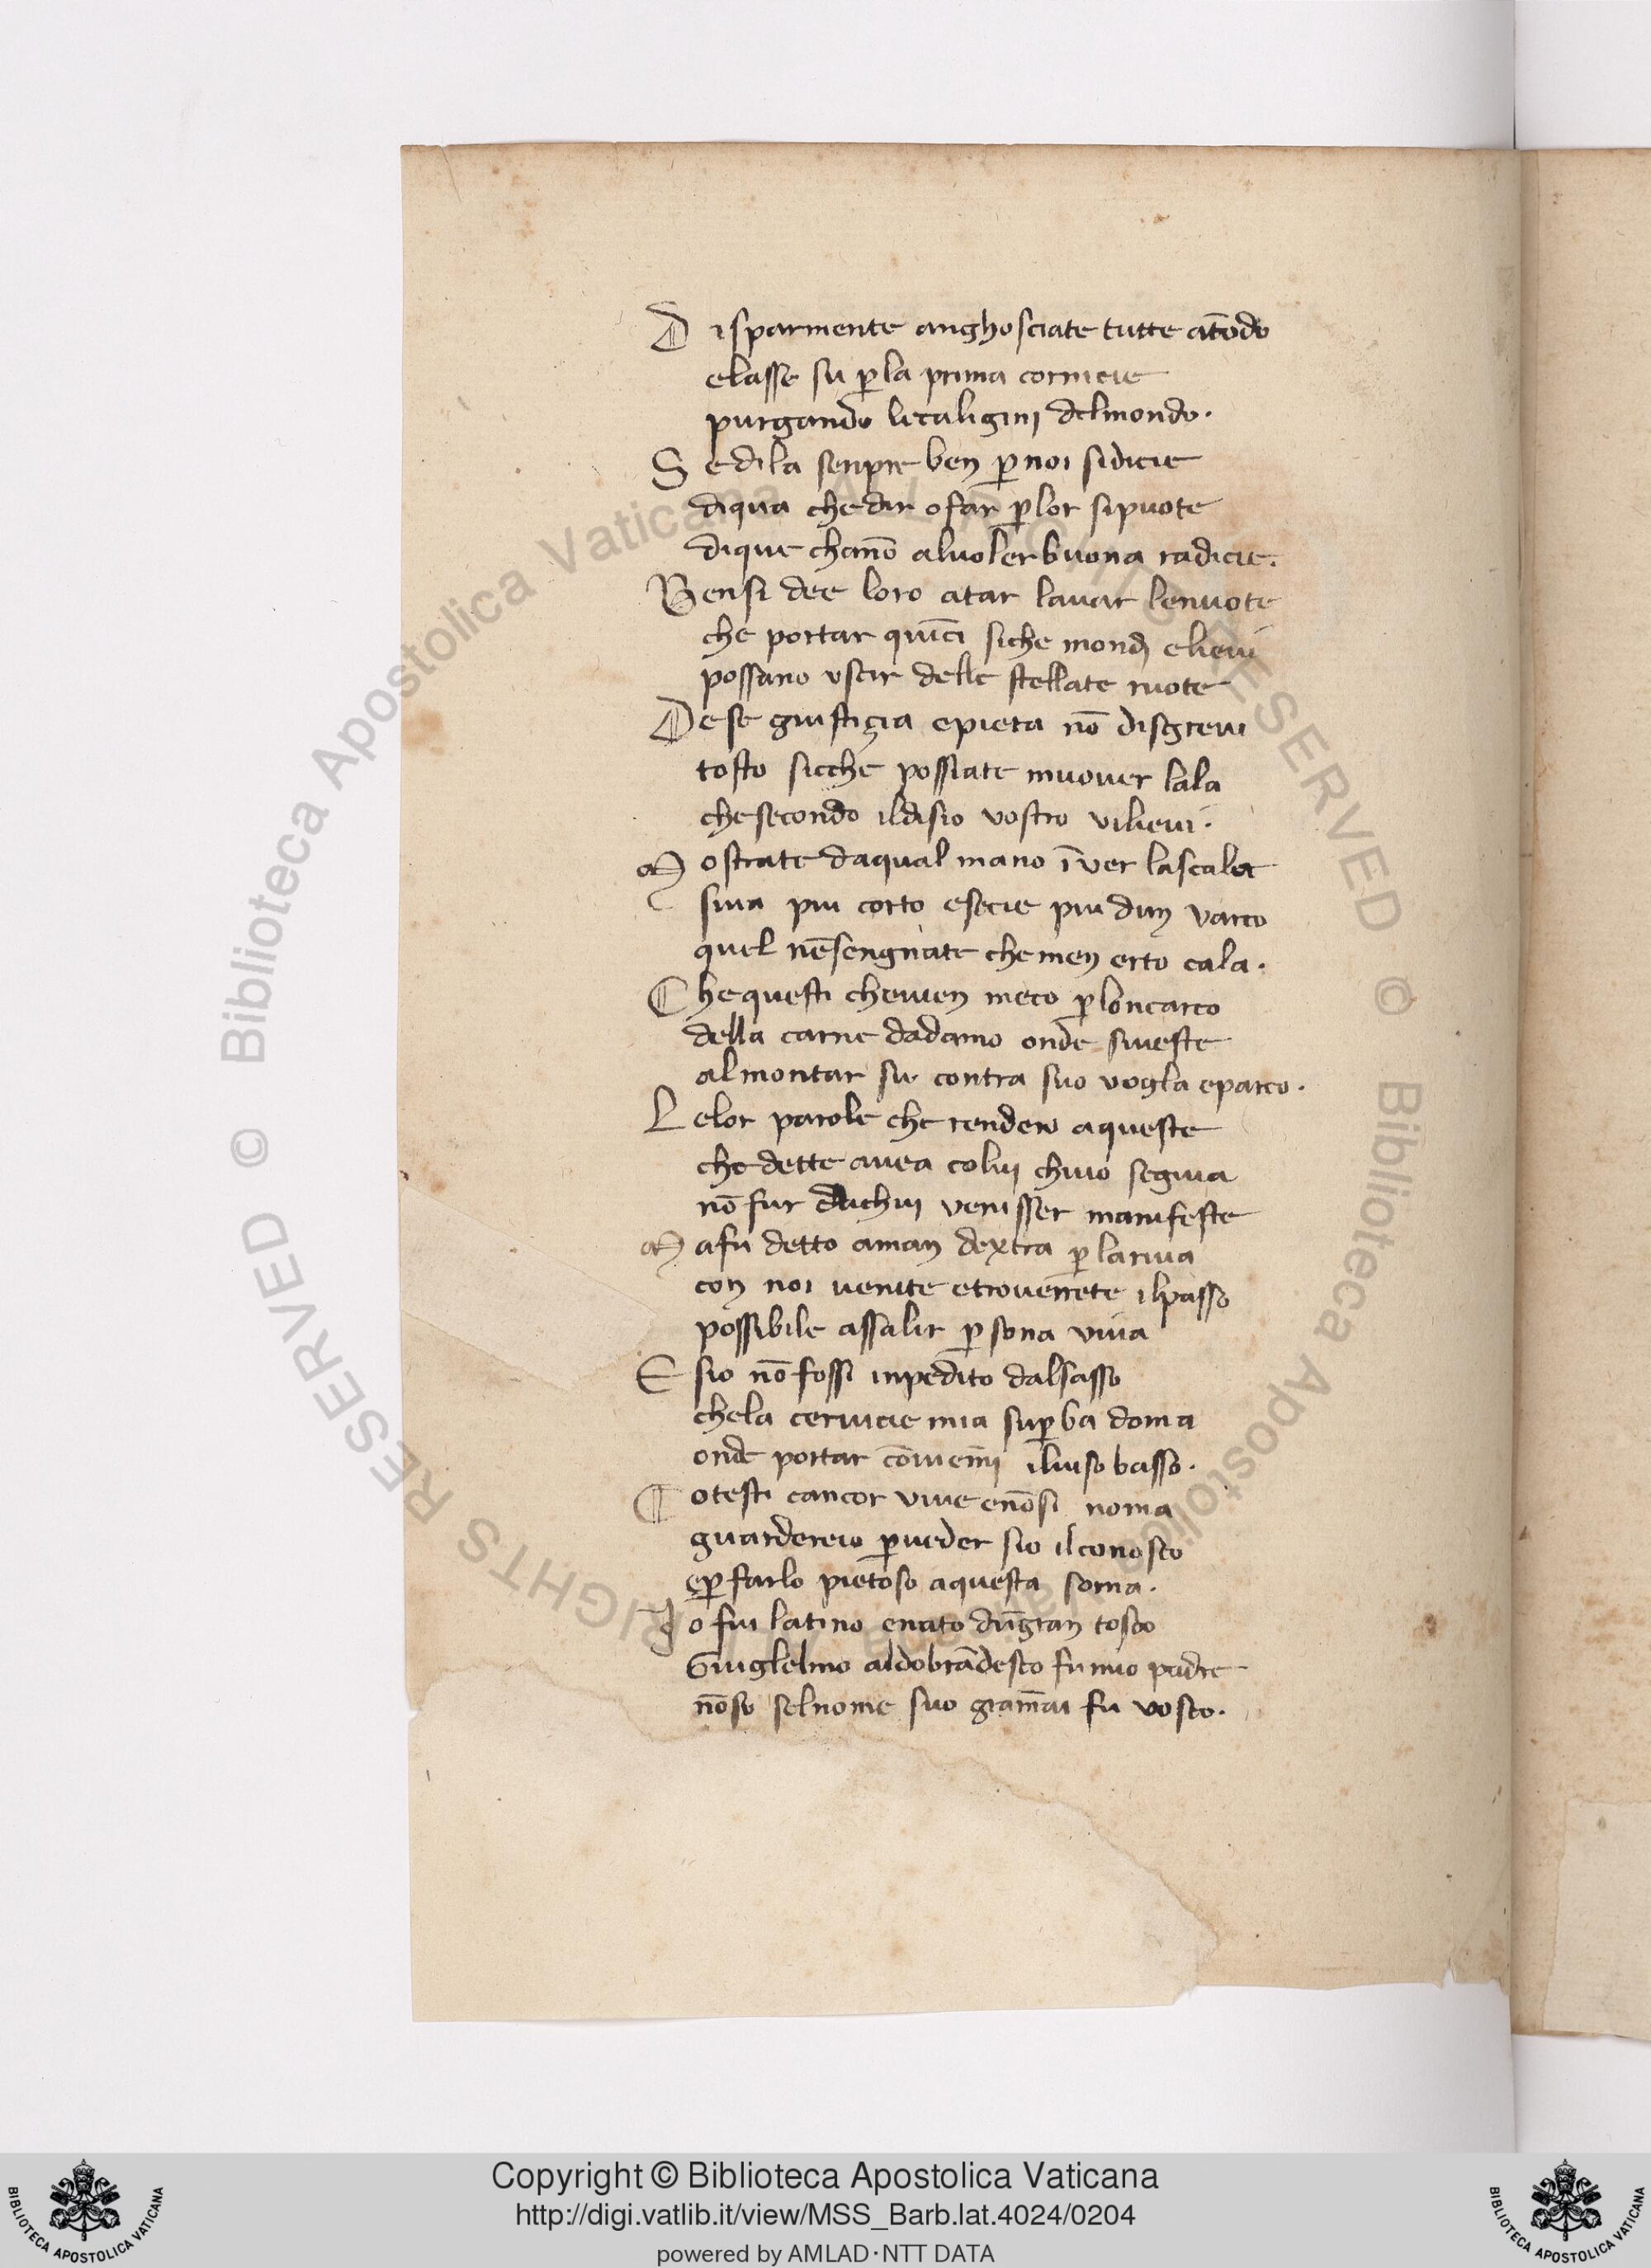 Disparmente anghosciate tutte atōdo
elasse su p̲la prima cornicie
purgando lecaligini delmondo.
Sedila senpre ben p̲ noi sidicie
diqua chedir ofar p̲lor sipuote
dique channō aluoler buona radicie.
Bensi dee loro atar lauar lenuote
che portar quīci siche mondj elieui
possano uscir delle stellate ruote
Dese giustiçia epieta nō disgreui
tosto sicche possiate muouer lala
chesecondo ildisio vostro vilieui.
Mostrate daqual mano īver lascala
siua piu corto esecie piu dun varco
quel nēsengnate chemen erto cala.
Chequesti cheuien meco p̲loncarco
della carne dadamo onde siueste
almontar su contra suo vogla eparco.
Lelor parole che rendero aqueste
che dette auea colui chuio seguia
nō fur dachui venisser manifeste
Mafu detto aman dextra p̲ lariua
con noi uenite etrouerrete ilpasso
possibile assalir p̲sona viua
Esio nō fossi inpedito dalsasso
chela ceruicie mia sup̲ba doma
onde portar cōuiemmi iluiso basso.
Cotesti cancor viue enōsi noma
guardereio p̲ueder sio ilconosco
ep̲ farlo pietoso aquesta soma.
Io fui latino enato dūgran tosco
Guiglelmo aldobrādesco fu mio padre
nōso selnome suo giāmai fu vosco.
Copyright © Biblioteca Apostolica Vaticana
http://digi.vatlib.it/view/MSS_Barb.lat.4024/0204
powered by AMLAD·NTT DATA
BIBLIOTECA APOSTOLICA VATICANA
BIBLIOTECA APOSTOLICA VATICANA
© Biblioteca Apostolica Vaticana ALL RIGHTS RESERVED © Biblioteca Apostolica Vaticana ALL RIGHTS RESERVED